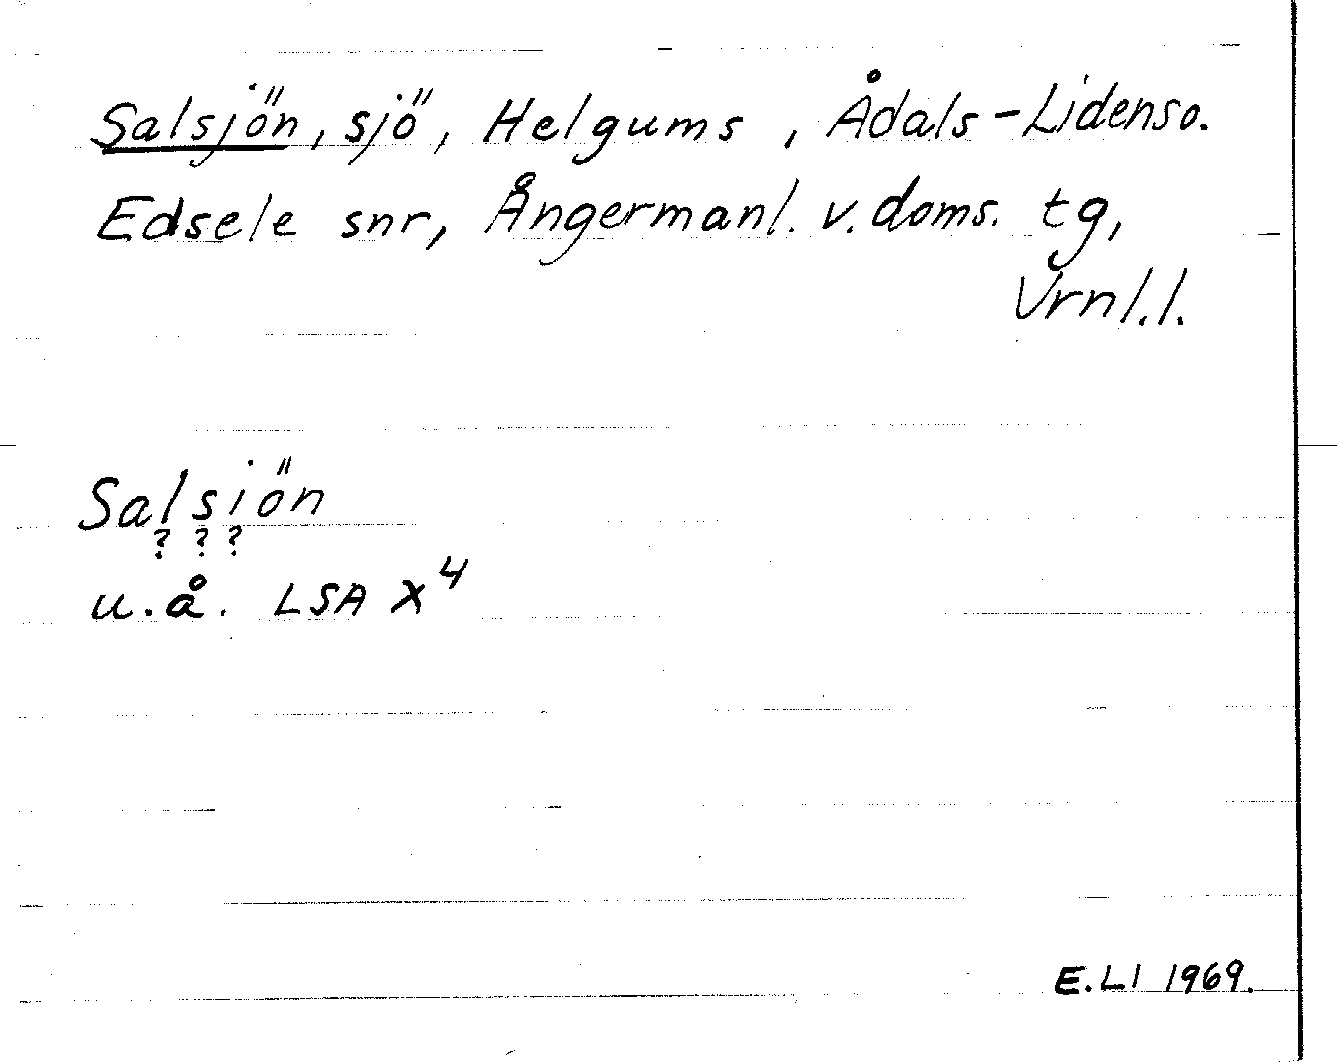 Salsjön, sjö, Helgums, Ådals-Lidens o.
Edsele snr, Ångermanl. v. doms. tg,
Vrnl.l.
Salsiön
? ? ?
u.å. LSA X4
E.LI 1969.